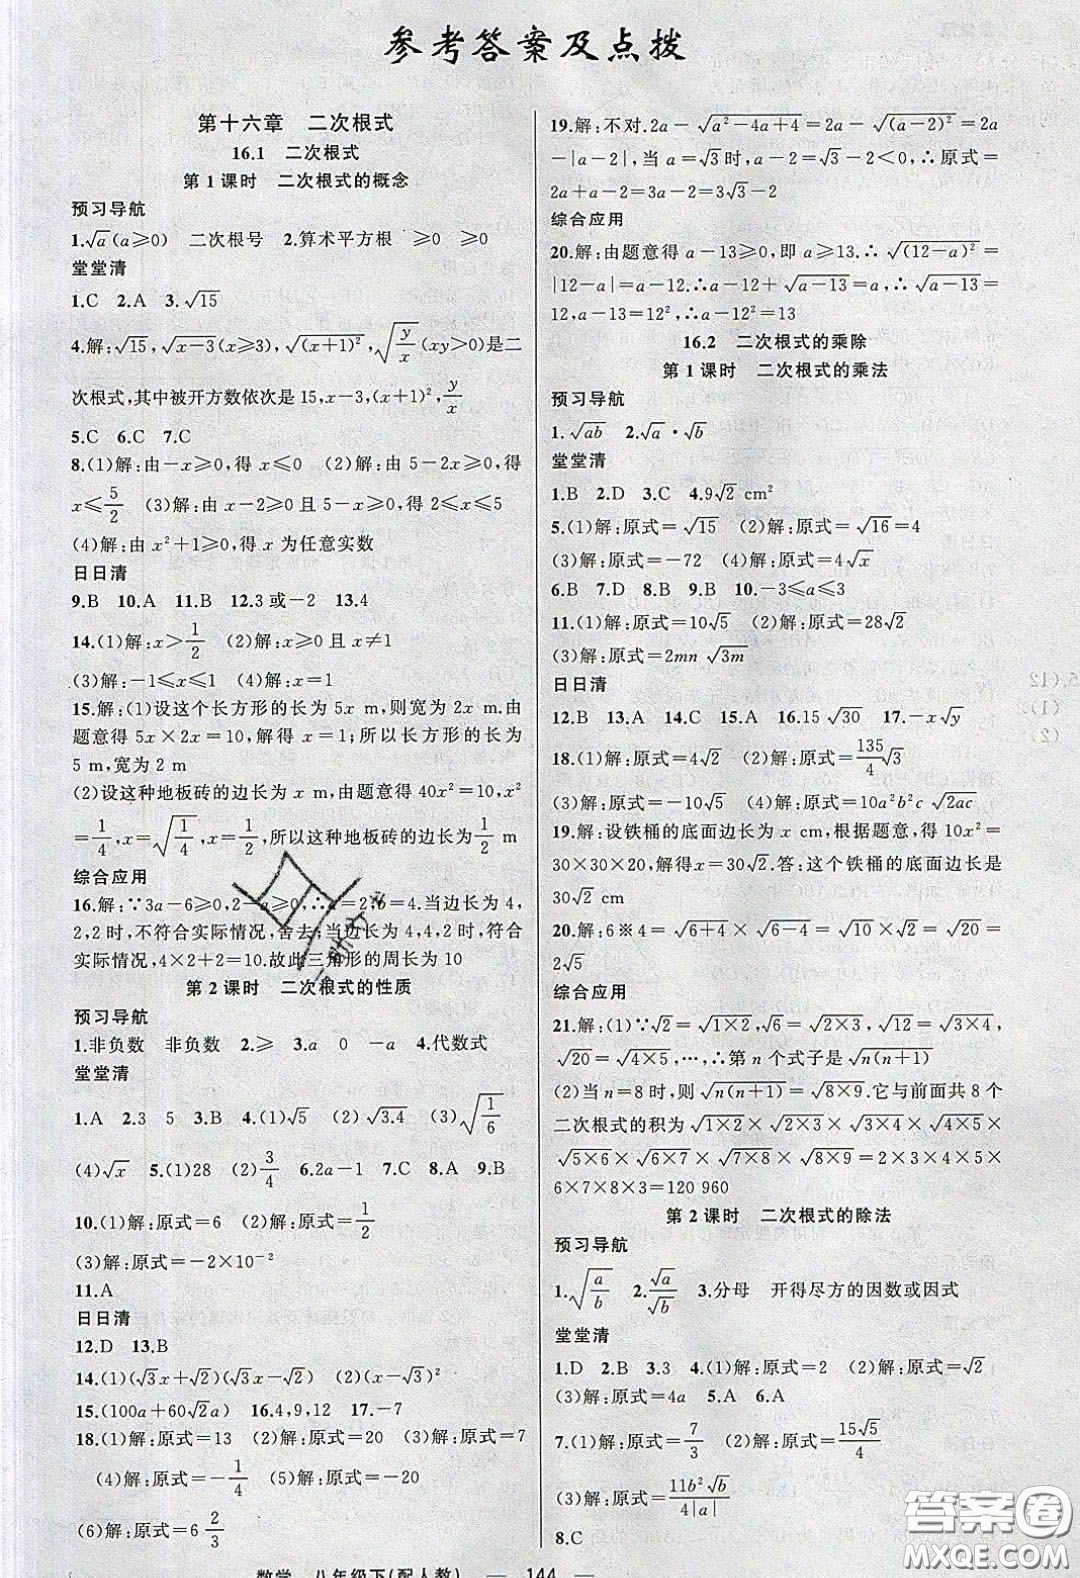 参考答案及点拨
第十六章 二次根式
16.1 二次根式
第1课时 二次根式的概念
预习导航
1.√a(a≥0) 二次根号 2.算术平方根 ≥0 ≥0
堂堂清
1.C 2.A 3.√15
4.解:√15,√(x-3)(x≥3),√((x+1)²),√(y/x)(xy>0)是二
次根式,其中被开方数依次是15,x-3,(x+1)²,y/x
5.C 6.C 7.C
8.(1)解:由-x≥0,得x≤0 (2)解:由5-2x≥0,得
x≤5/2 (3)解:由x-2≥0且5-x≥0,得2≤x≤5
(4)解:由x²+1≥0,得x为任意实数
日日清
9.B 10.A 11.B 12.3或-2 13.4
14.(1)解:x>1/2 (2)解:x≥0且x≠1
(3)解:-1≤x≤1 (4)解:x=1
15.解:(1)设这个长方形的长为5x m,则宽为2x m.由
题意得5x×2x=10,解得x=1;所以长方形的长为
5 m,宽为2 m
(2)设这种地板砖的边长为x m,由题意得40x²=10,x²
=1/4,x=√(1/4),x=1/2,所以这种地板砖的边长为1/2 m
综合应用
16.解:∵3a-6≥0,2-a≥0,∴a=2,b=4.当边长为4,
2,2时,不符合实际情况,舍去;当边长为4,4,2时,符合
实际情况,4×2+2=10.故此三角形的周长为10
第2课时 二次根式的性质
预习导航
1.非负数 非负数 2.≥ 3.a 0 -a 4.代数式
堂堂清
1.A 2.3 5 3.B 4.(1)√5 (2)√3.4 (3)√(1/6)
(4)√x 5.(1)28 (2)3/4 6.2a-1 7.C 8.A 9.B
10.(1)解:原式=6 (2)解:原式=1/2
(3)解:原式=-2×10⁻²
11.A
日日清
12.D 13.B
14.(1)(√3x+√2)(√3x-√2) (2)(x-√2)²
15.(100a+60√2a) 16.4,9,12 17.-7
18.(1)解:原式=13 (2)解:原式=20 (3)解:原式=7
(4)解:原式=-1/4 (5)解:原式=-20
(6)解:原式=6 2/3
19.解:不对.2a-√(a²-4a+4)=2a-√((a-2)²)=2a
-|a-2|,当a=√3时,a-2=√3-2<0,∴原式=
2a+a-2=3a-2=3√3-2
综合应用
20.解:由题意得a-13≥0,即a≥13.∴√((12-a)²)=
|12-a|=a-12.∴a-12+√(a-13)=a,∴√(a-13)=
12,a-13=12²,∴a-12²=13
16.2 二次根式的乘除
第1课时 二次根式的乘法
预习导航
1.√ab 2.√a·√b
堂堂清
1.B 2.D 3.C 4.9√2 cm²
5.(1)解:原式=√15 (2)解:原式=√16=4
(3)解:原式=-72 (4)解:原式=4√x
6.B 7.D 8.B 9.B 10.-3≤a≤3
11.(1)解:原式=10√5 (2)解:原式=28√2
(3)解:原式=2mn√3m
日日清
12.B 13.A 14.C 15.A 16.15√30 17.-x√y
18.(1)解:原式=4√2 (2)解:原式=135/4√3
(3)解:原式=-10√5 (4)解:原式=10a²b²c√2ac
19.解:设铁桶的底面边长为x cm,根据题意,得10x²=
30×30×20,解得x=30√2.答:这个铁桶的底面边长是
30√2 cm
20.解:6※4=√(6+4)×√(6-4)=√10×√2=√20=
2√5
综合应用
21.解:(1)∵√2=√(1×2),√6=√(2×3),√12=√(3×4),
√20=√(4×5),…,∴第n个式子是√(n(n+1))
(2)当n=8时,则√(n(n+1))=√(8×9).它与前面共8个
二次根式的积为√(1×2)×√(2×3)×√(3×4)×√(4×5)×
√(5×6)×√(6×7)×√(7×8)×√(8×9)=2×3×4×5×
6×7×8×√9=120 960
第2课时 二次根式的除法
预习导航
1.√(a/b) 2.√a/√b 3.分母 开得尽方的因数或因式
堂堂清
1.D 2.B 3.3 4.(1)解:原式=2 (2)解:原式=√2
(3)解:原式=4a 5.A 6.A
7.(1)解:原式=7/3 (2)解:原式=15√5/4
(3)解:原式=11b²√b/4|a|
8.C
数学 八年级下(配人教) — 144 —
答案圈
MXQE.COM